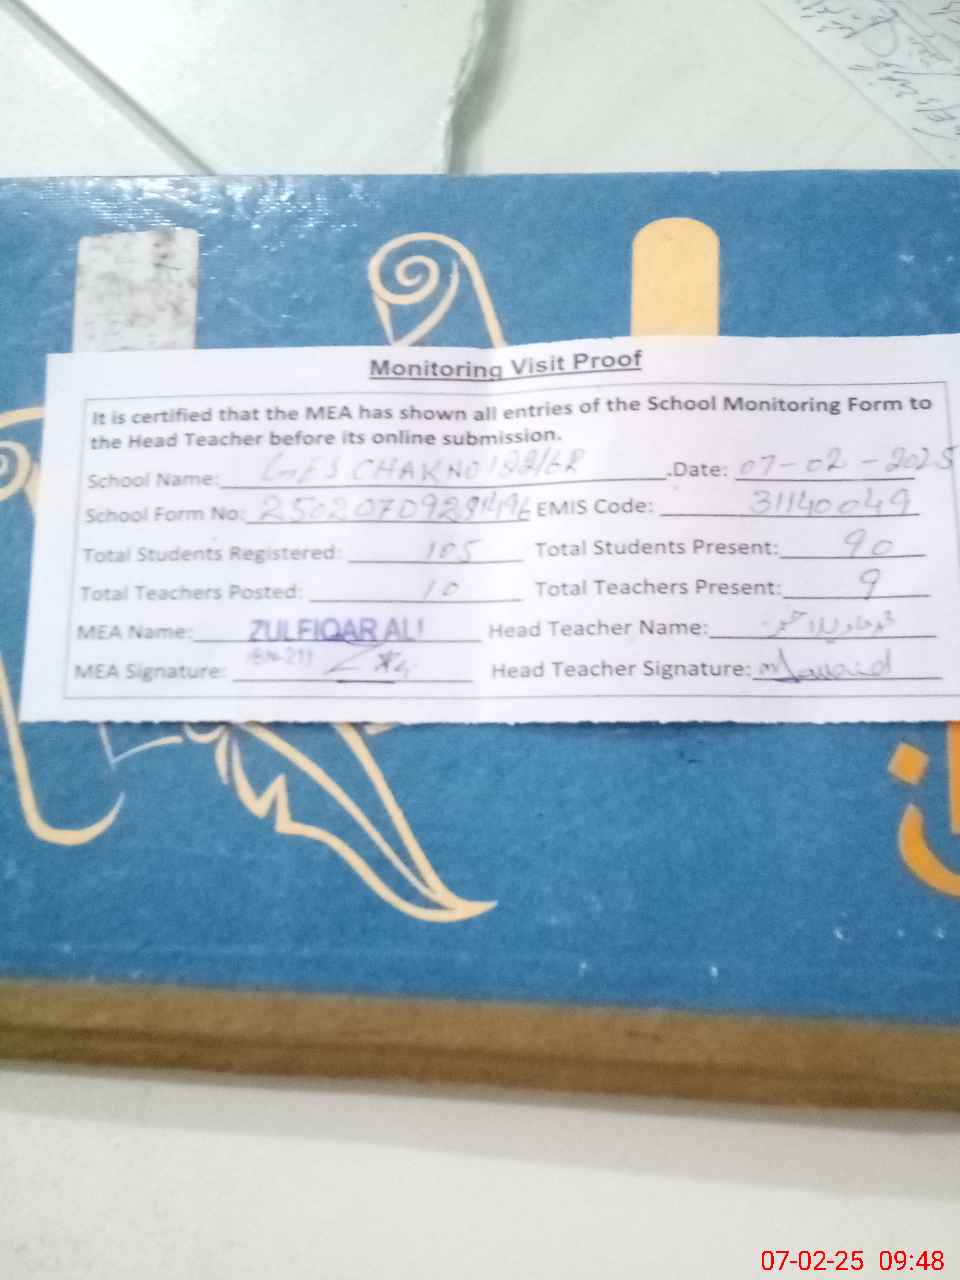 Monitoring Visit Proof
It is certified that the MEA has shown all entries of the School Monitoring Form to
the Head Teacher before its online submission.
School Name: GES CHAK NO 122/6R .Date: 07-02-2025
School Form No: EMIS Code: 31140049
Total Students Registered: 105 Total Students Present: 90
Total Teachers Posted: 10 Total Teachers Present: 9
MEA Name: ZULFIQAR ALI Head Teacher Name:
(BN-21)
MEA Signature: Head Teacher Signature:
ن
07-02-25 09:48